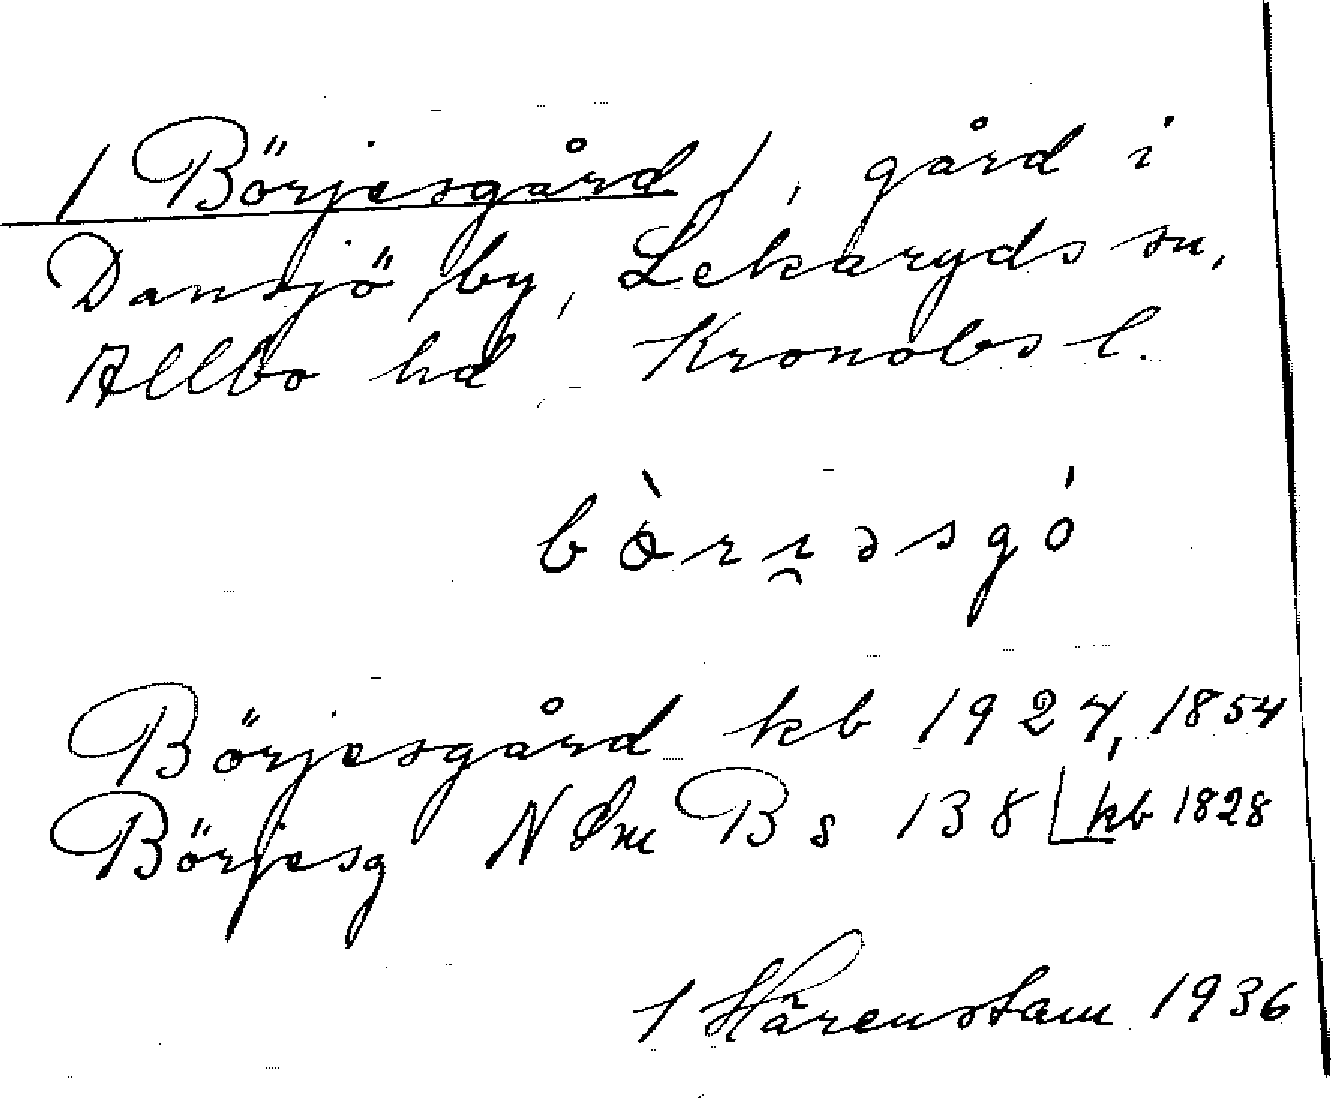 / Börjesgård /, gård i
Dansjö by, Lekaryds sn,
Allbo hd Kronobs l.
bòri̯əsgó
Börjesgård kb 1924, 1854
Börjesg N Sm B s 138 kb 1828
Härenstam 1936